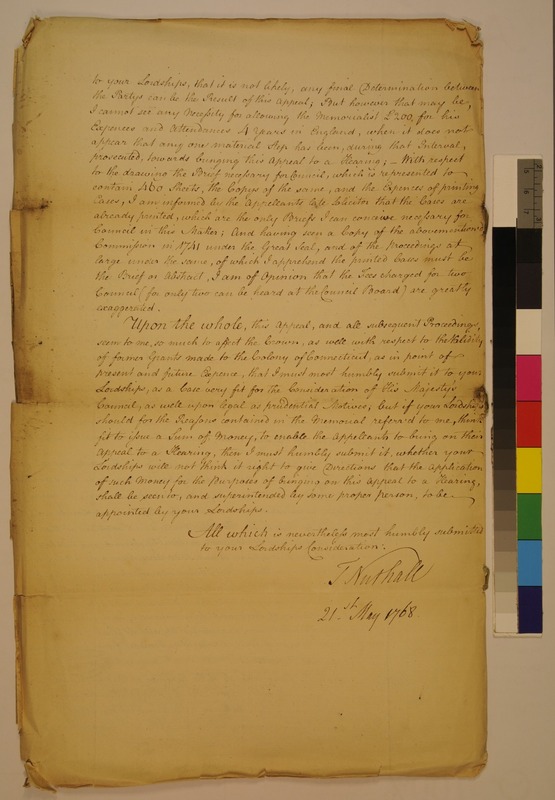 to your Lordships, that it is not likely, any final Determination between
the Partys can be the Result of this Appeal; But however that may be,
I cannot see any Necessity for allowing the Memorialist £200, for his
Expences and Attendances 4 Years in England, when it does not
appear that any one material Step has been, during that Interval,
prosecuted, towards bringing this Appeal to a Hearing; — With respect
to the drawing the Brief necessary for Council, which is represented to
contain 460 Sheets, the Copys of the same, and the Expences of printing
Cases, I am informed by the Appellants late Solicitor that the Cases are
already printed, which are the only Briefs I can conceive necessary for
Council in this Matter; And having seen a Copy of the abovementioned
Commission in 1741 under the Great Seal, and of the proceedings at
large under the same, of which I apprehend the printed Cases must be
the Brief or Abstract, I am of Opinion that the Fees charged for two
Council (for only two can be heard at the Council Board) are greatly
exaggerated.
Upon the whole, this Appeal, and all subsequent Proceedings,
seem to me, so much to affect the Crown, as well with respect to the Validity
of former Grants made to the Colony of Connecticut, as in point of
present and future Expence, that I must most humbly submit it to your
Lordships, as a Case very fit for the Consideration of His Majesty's
Council, as well upon legal as prudential Motives; but if your Lordships
should for the Reasons contained in the Memorial referr'd to me, think
fit to issue a Sum of Money, to enable the Appellants to bring on their
Appeal to a Hearing, then I must humbly submit it, whether your
Lordships will not think it right to give Directions that the Application
of such Money for the Purposes of bringing on this Appeal to a Hearing,
shall be seen to, and superintended by some proper person, to be
appointed by your Lordships.
All which is nevertheless most humbly submitted
to your Lordships Consideration.
T Nuthall
21st May 1768.